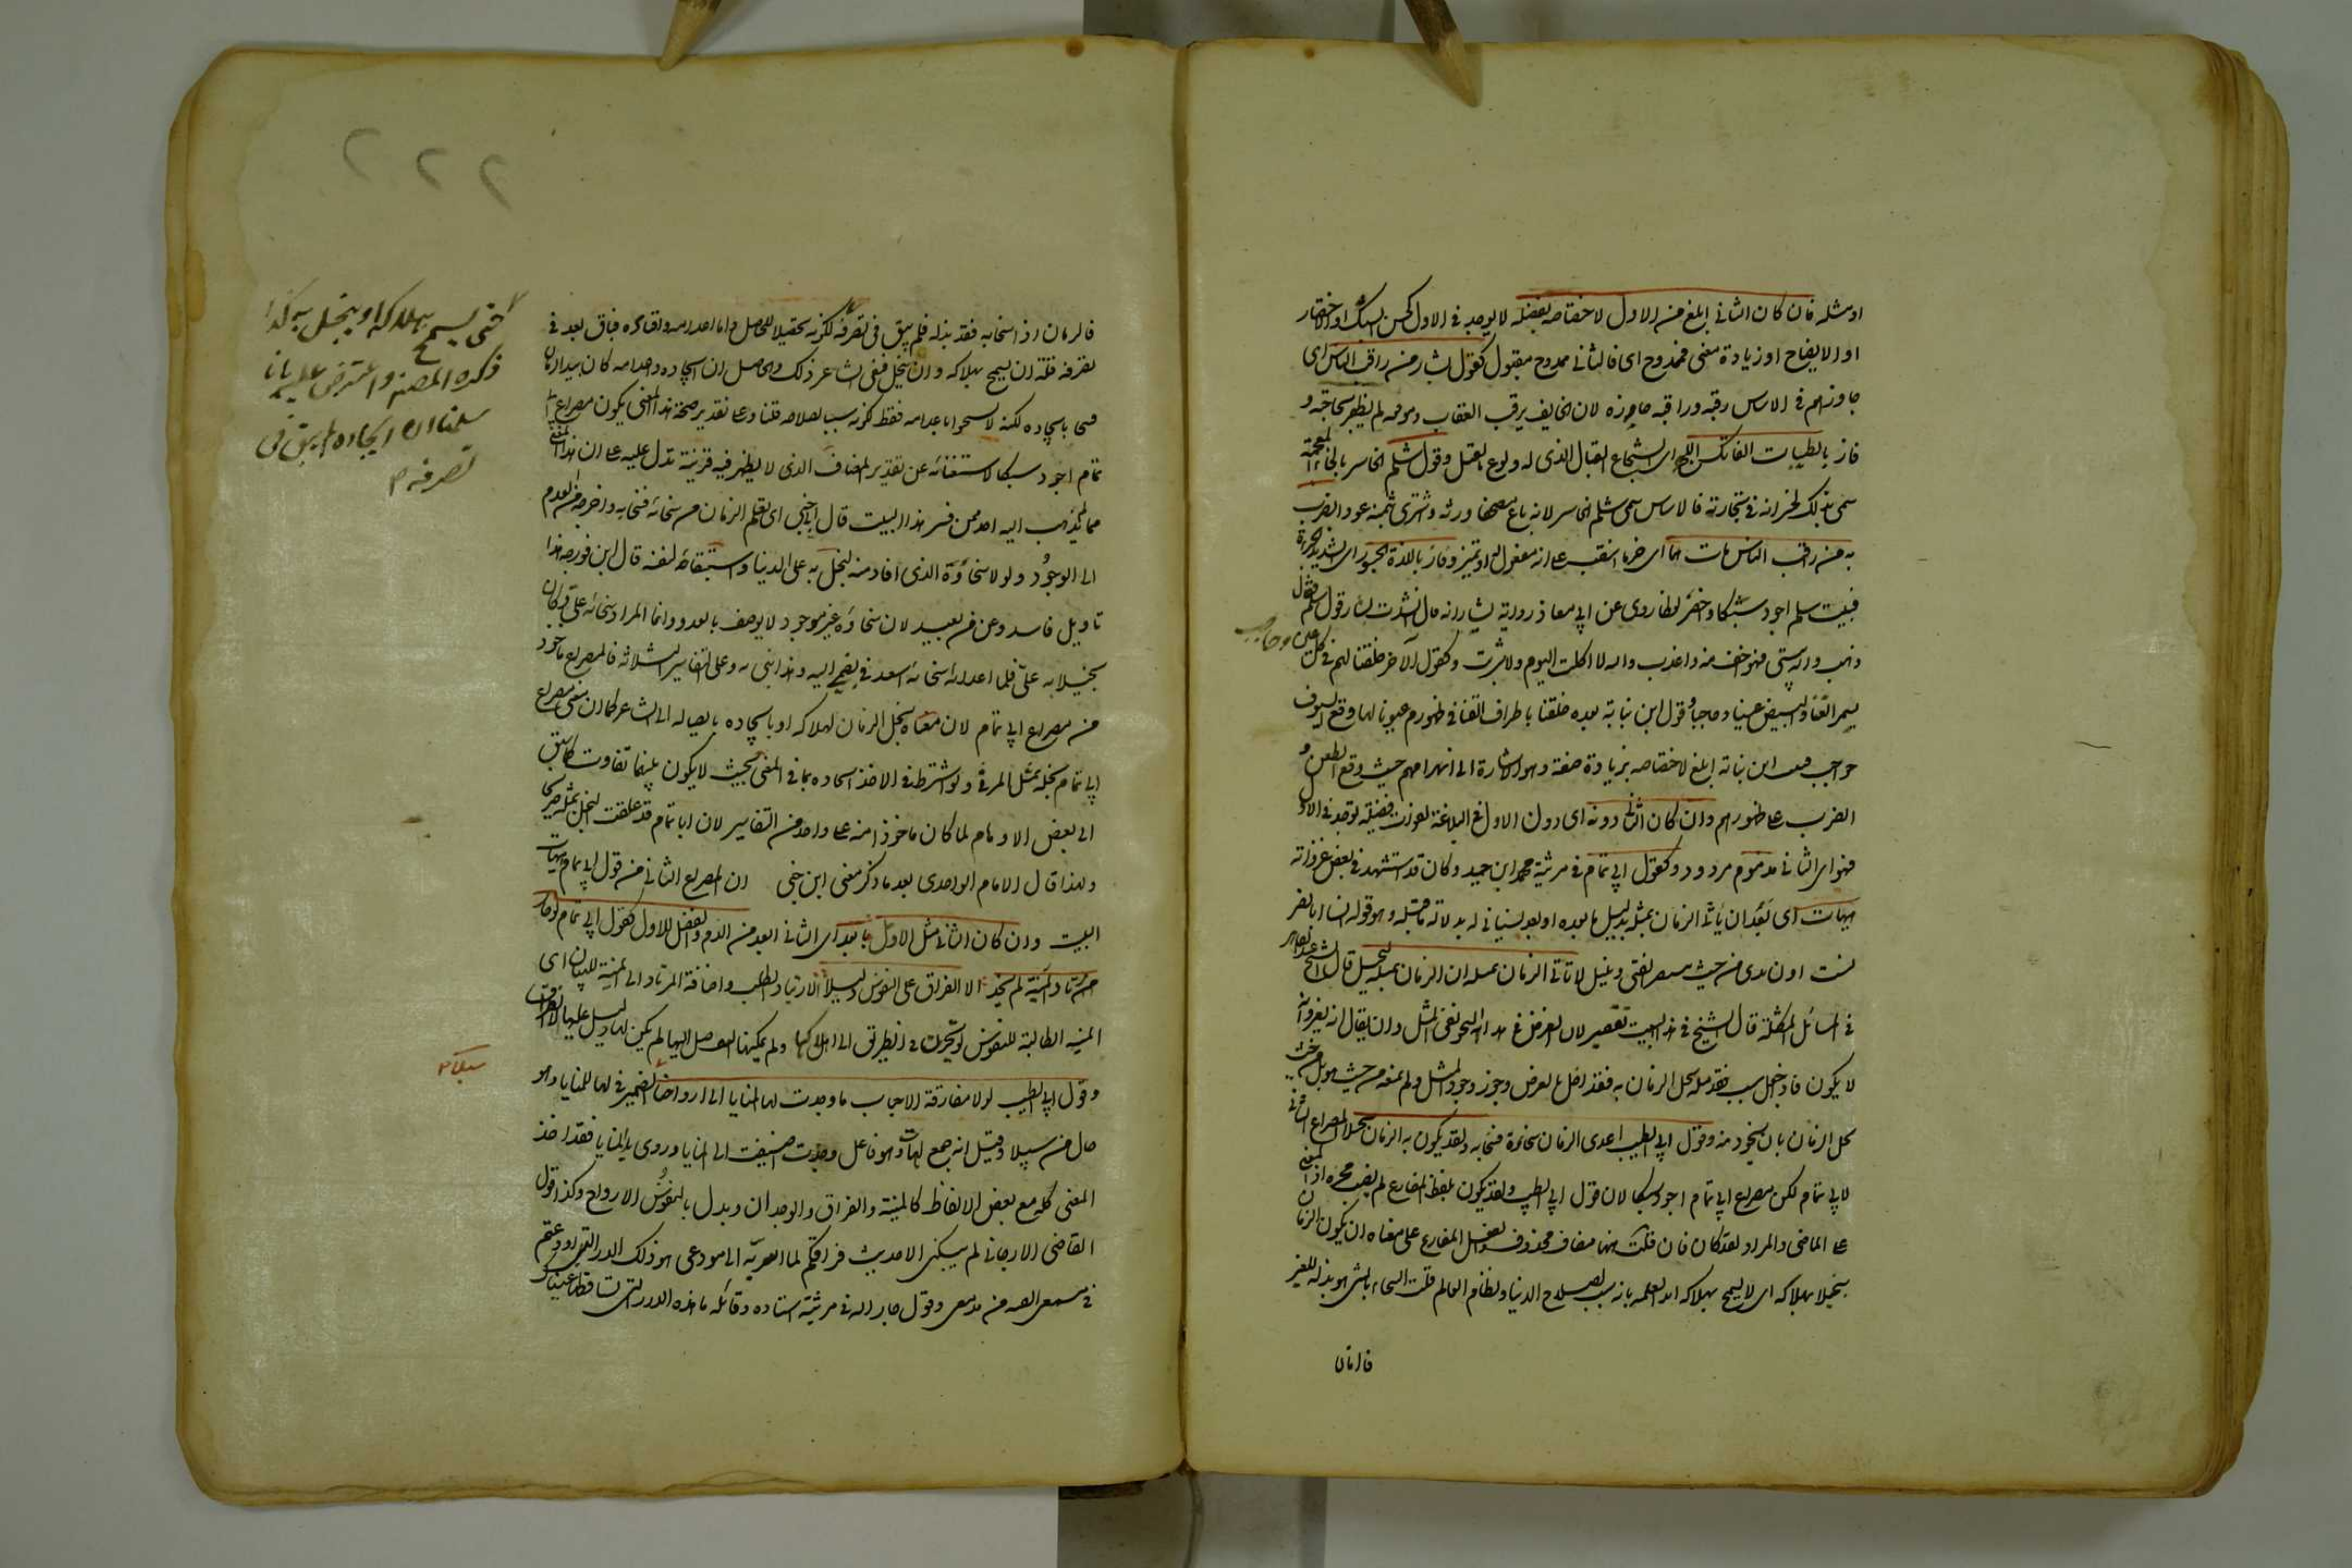 او مثله فان كان الثاني ابلغ من الاول لاختصاصه بفضيلة لا يوجد في الاول كحسن السبك او الاختصار
او الايضاح او زيادة معنى فممدوح اى فالثاني ممدوح مقبول كقول بشار من راقب الناس اى
حاذرهم في الاساس رقبه وراقبه حاذره لان الخايف يرقب العقاب ويتوقعه لم يظفر بحاجته و
فاز بالطيبات الفاتك اللهج اى الشجاع القتال الذى له ولوع بالقتل وقول سلم الخاسر بالخاء المعجمة
سمى بذلك لخسرانه في تجارته فالاساس سمى سلم الخاسر لانه باع مصحفا ورثه واشترى بثمنه عودا يضرب
به من راقب الناس مات هما اى حزنا انتصب على انه مفعول له او تميز وفاز باللذة الجسور اى الشديد الجرأة
فبيت سلم اجود سبكا واخصر لفظا روى عن ابي معاذ رواية بشار انه قال انشدت بشارا قول سلم فقال
ذهب والله بيتى فهو اخف منه واعذب والله لا اكلت اليوم ولا شربت وكقول الآخر خلقنا لهم في كل عين وحاجب
بسمر القنا والبيض عينا وحاجبا وقول ابن نباتة بعده خلقنا باطراف القنا في ظهورهم عيونا لها وقع السيوف
حواجب فبيت ابن نباتة ابلغ لاختصاصه بزيادة صفة وهو الاشارة الى انهزامهم حيث وقع الطعن و
الضرب على ظهورهم وان كان الثاني دونه اى دون الاول في البلاغة لفوات فضيلة توجد في الاول
فهو اى الثاني مذموم مردود كقول ابي تمام في مرثية محمد ابن حميد وكان قد استشهد في بعض غزواته
هيهات اى بعد ان ياتى الزمان بمثله بدليل ما بعده او بعد نسيانى له بدلالة ما قبله وهو قوله انسى ابا نصر
نسيت اذن يدى من حيث ينتصر الفتى وينيل لا ياتى الزمان بمثله ان الزمان بمثله لبخيل قال الشيخ عبد القاهر
في المسائل المشكلة قال الشيخ في هذا البيت تقصير لان الغرض في هذا النحو نفى المثل وان يقال انه يعز وانه
لا يكون فاذا جعل سبب فقد مثله بخل الزمان به فقد اخل بالغرض وجوز وجود المثل ولم يمنعه من حيث هو بل من حيث
بخل الزمان بان يجود به وقول ابي الطيب اعدى الزمان سخاؤه فسخا به ولقد يكون به الزمان بخيلا فالمصراع الثاني
لابي تمام لكن مصراع ابي تمام اجود سبكا لان قول ابي الطيب ولقد يكون بلفظ المضارع لم يصب محزه اذ المعنى
على الماضى والمراد لقد كان فان قلت ههنا مضاف محذوف والفعل المضارع على معناه اى يكون الزمان
بخيلا بهلاكه اى لا يسمح بهلاكه ابدا لعلمه بانه سبب لصلاح الدنيا ونظام العالم قلت السخاء بالشى هو بذله للغير
فالزمان
فالزمان اذا سخا به فقد بذله فلم يبق في تصرفه لكونه تحصيلا للحاصل واما اعدامه وافناؤه فباق بعد في
تصرفه فله ان يسمح بهلاكه وان يبخل فنفى الشاعر ذلك والحاصل ان ايجاده واعدامه كان بيد الزمان
فسخى بايجاده لكنه لا يسخو باعدامه فقط لكونه سببا لصلاحه قلنا وعلى تقدير صحة هذا المعنى يكون مصراع ابي
تمام اجود سبكا لاستغنائه عن تقدير المضاف الذى لا يظهر فيه قرينة تدل عليه على ان هذا المعنى
مما لم يذهب اليه احد ممن فسر هذا البيت قال ابن جنى اى تعلم الزمان من سخائه فسخا به واخرجه من العدم
الى الوجود ولولا سخاؤه الذى افاد منه لبخل به على الدنيا واستبقاه لنفسه قال ابن فورجه هذا
تاويل فاسد وغرض بعيد لان سخاؤه غير موجود لا يوصف بالعدوى وانما المراد سخا به على وكان
بخيلا به على فلما اعداه سخائه اسعدنى بضمى اليه وهدايتى له وعلى التفاسير الثلاثه فالمصراع ماخوذ
من مصراع ابي تمام لان معناه بخل الزمان بهلاكه او بايجاده بايصاله الى الشاعر كما ان معنى مصراع
ابي تمام بخله بمثل المرثى ولو اشترط في الاخذ اتحاده بما في المعنى بحيث لا يكون بينهما تفاوت كما سبق
الى بعض الاوهام لما كان ماخوذا منه على واحد من التفاسير لان ابا تمام قد علقت البخل بمثله صريحا
ولهذا قال الامام الواحدى بعد ما ذكر معنى ابن جنى ان المصراع الثاني من قول ابي تمام هيهات
البيت وان كان الثاني مثل الاول فابعد اى الثاني ابعد من الذم والفضل للاول كقول ابي تمام لو حار
مرتاد المنية لم يجد الا الفراق على النفوس دليلا الارتياد الطلب واضافة المرتاد الى المنية للبيان اى
المنية الطالبة للنفوس لو تحيرت في الطريق الى اهلاكها ولم يمكنها التوصل اليها لم يكن لها دليل عليها الا الفراق
وقول ابي الطيب لولا مفارقة الاحباب ما وجدت لها المنايا الى ارواحنا الضمير في لها للمنايا وهو
حال من سبلا وقيل انه جمع لهات وهو فاعل وجدت اضيفت الى المنايا وروى يد المنايا فقد اخذ
المعنى كله مع بعض الالفاظ كالمنية والفراق والوجدان وبدل بالنفوس الارواح وكذا قول
القاضى الارجانى لم يبكنى الا حديث فراقكم لما اسر به الى مودعى هو ذلك الدر الذى اودعتم
في مسمعى القيته من مدمعى وقول جار الله في مرثية استاده وقائلة ما هذه الدرر التى تساقطها عيناك
سبلا
حتى يسمح بهلاكه او يبخل به كذا
ذكره المصنف واعترض عليه بانا
سلمنا ان ايجاده لم يبق في
تصرفه
٢٢٢